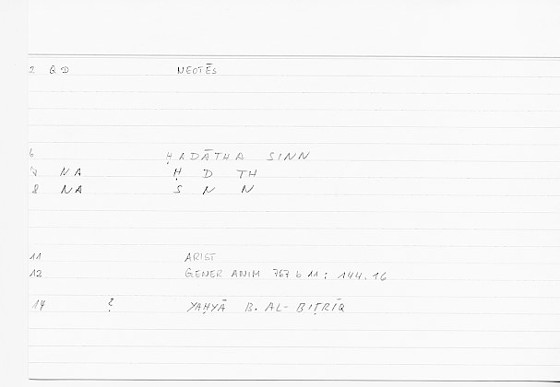 2 GD NEOTĒS
6 ḤADĀTHA SINN
7 NA Ḥ D TH
8 NA S N N
11 ARIST
12 GENER ANIM 767 b 11 : 144.16
17 ? YAḤYĀ B. AL-BIṬRĪQ